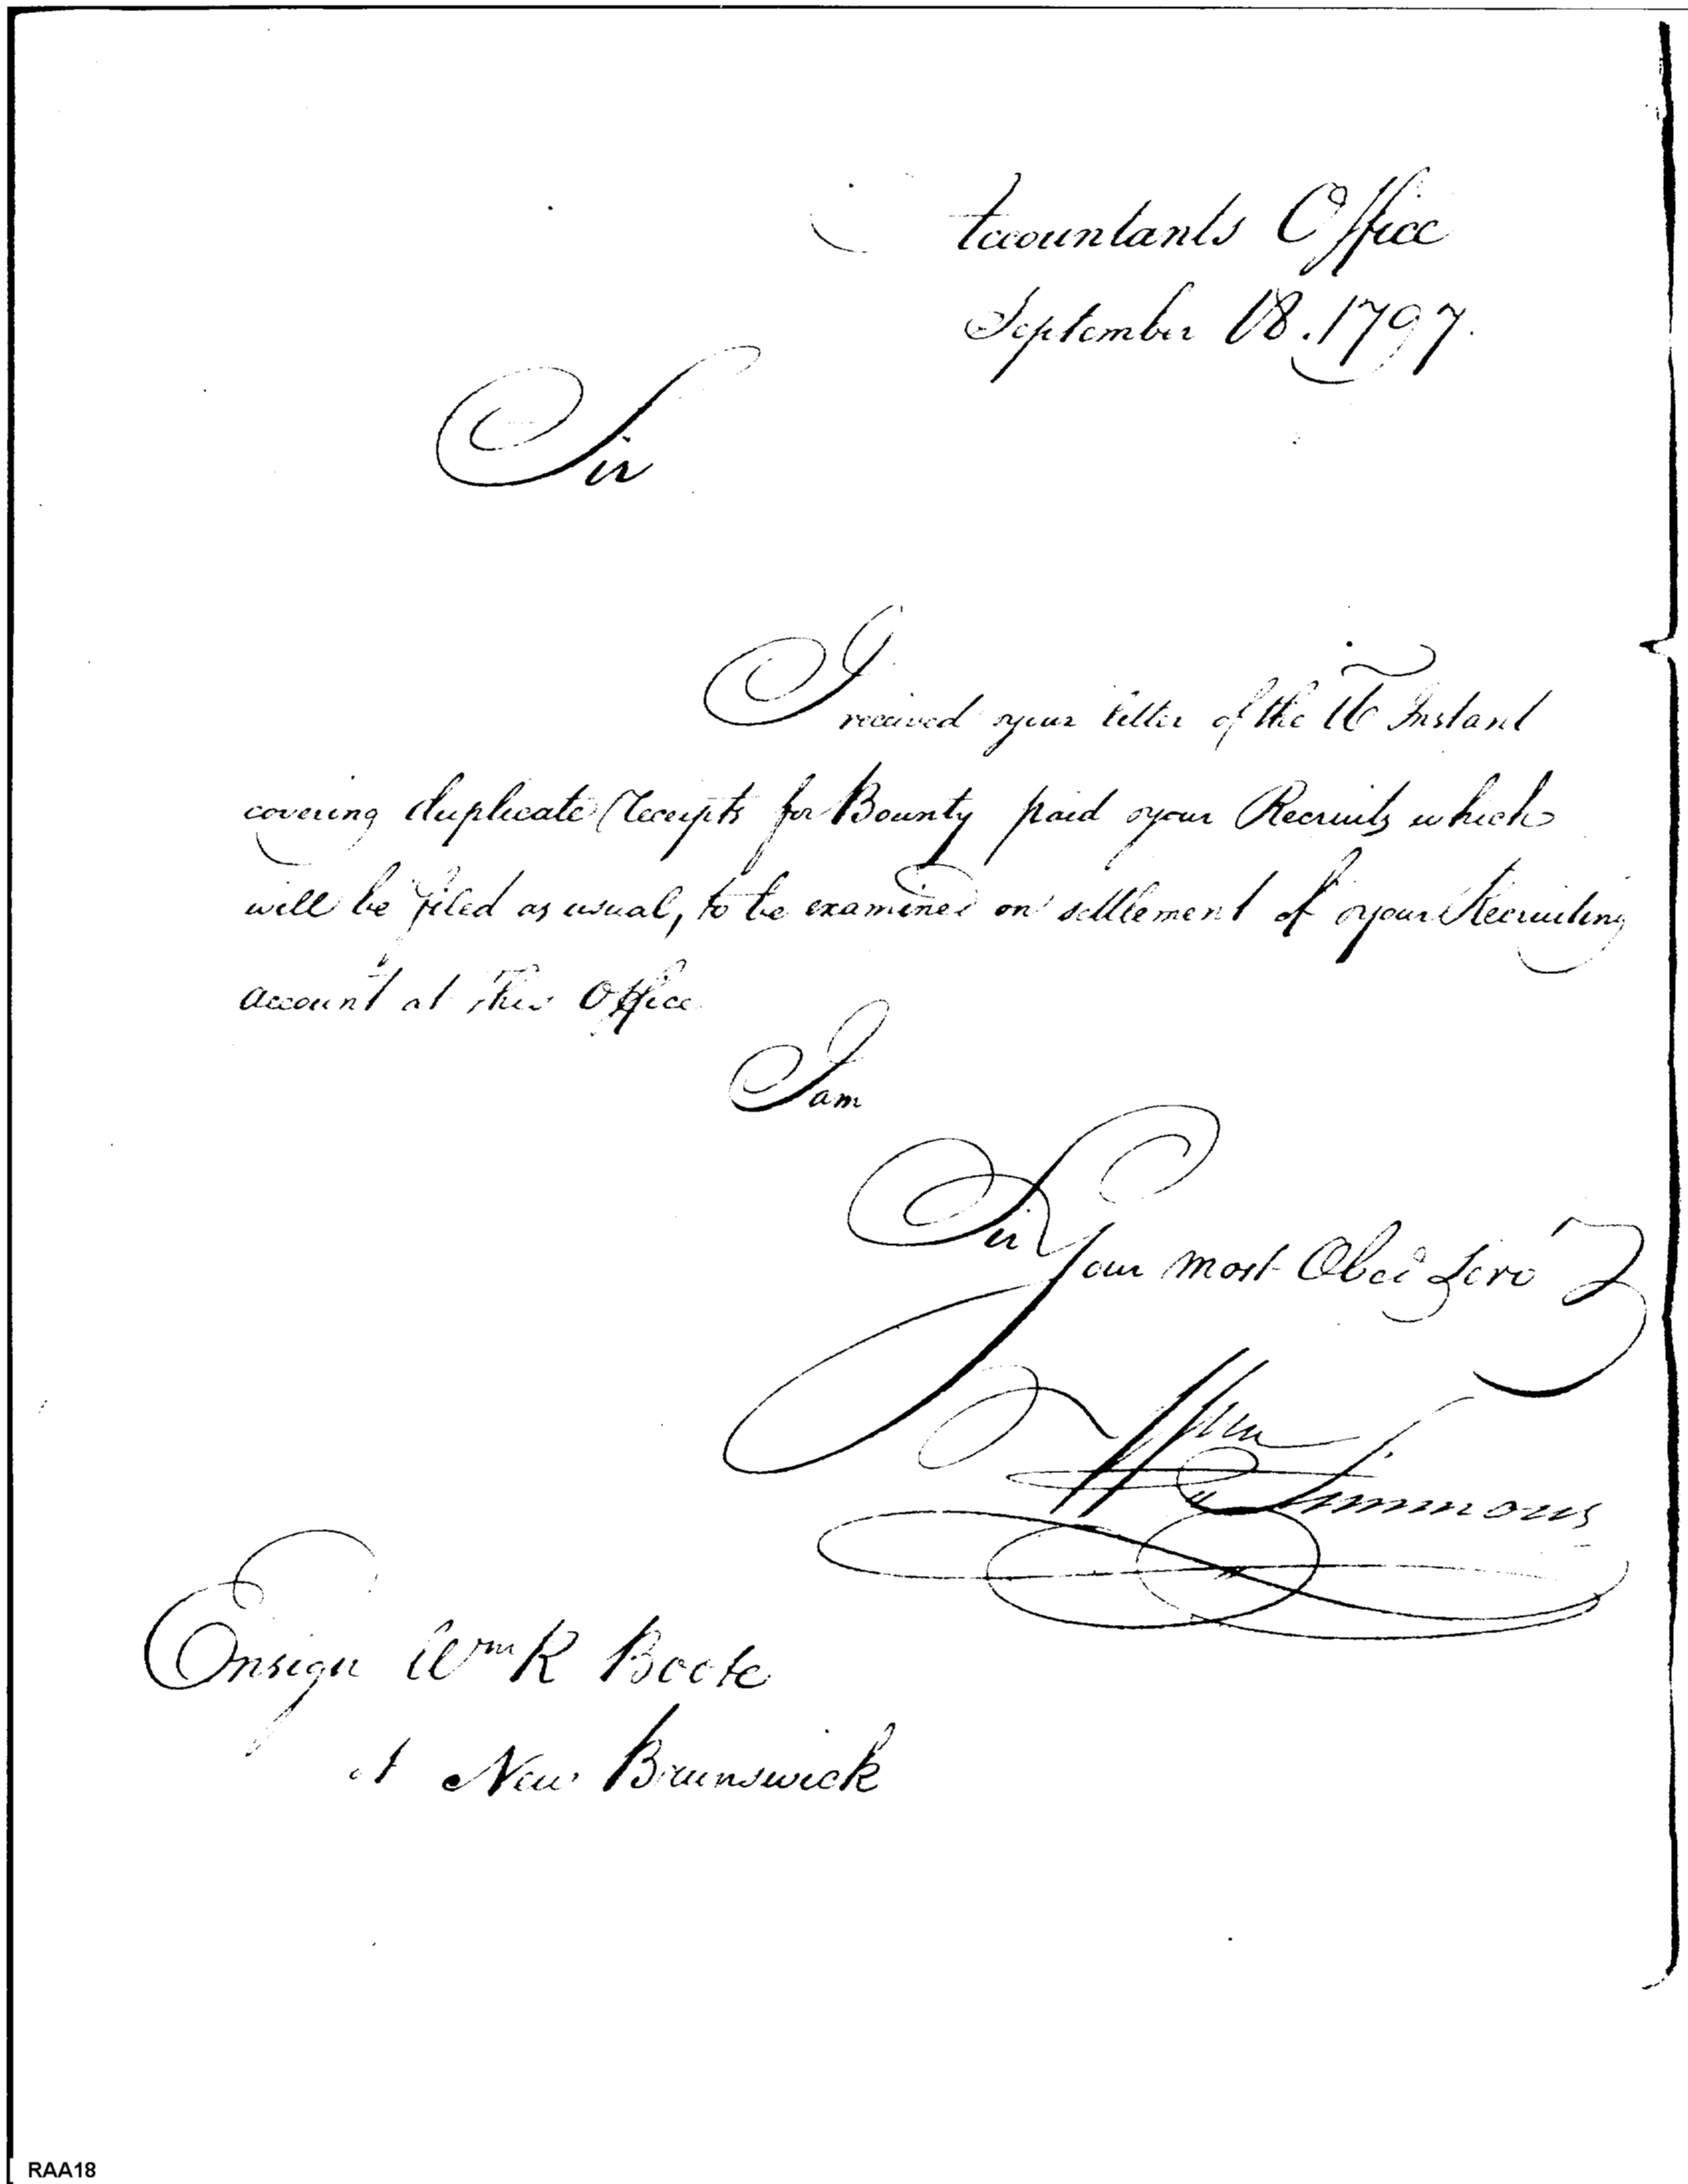 Accountants Office
September 18. 1797.
Sir
I received your letter of the 16 Instant
covering duplicate Receipts for Bounty paid your Recruits which
will be filed as usual, to be examined on settlement of your Recruiting
account at this Office
I am
Sir
Your most Obed Serv
Wm Simmons
Ensign Wm R Boote
at New Brunswick
RAA18